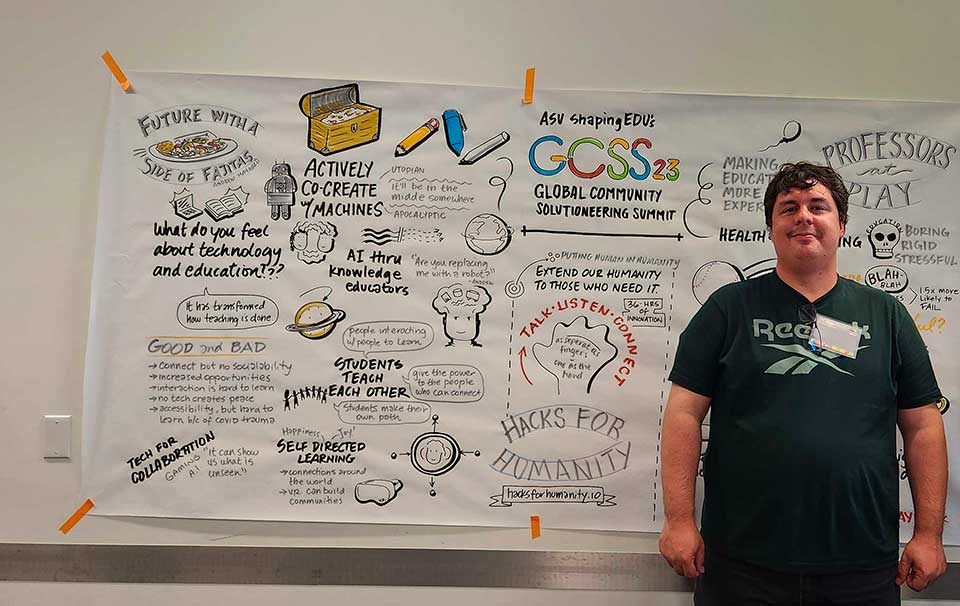 FUTURE WITH A
SIDE OF FAJITAS
ANDREW
What do you feel
about technology
and education!??
It has transformed
how teaching is done
GOOD and BAD
→ connect but no sociability
→ increased opportunities
→ interaction is hard to learn
→ no tech creates peace
→ accessibility, but hard to
learn b/c of covid trauma
TECH FOR
COLLABORATION
GAMING
A.I
"It can show
us what is
unseen"
ACTIVELY
CO-CREATE
w/ MACHINES
UTOPIAN
it'll be in the
middle somewhere
APOCALIPTIC
AI thru
knowledge
educators
"Are you replacing
me with a robot?"
people interacting
w/ people to learn
STUDENTS
TEACH
EACH OTHER
give the power
to the people
who can connect
Students make their
own path
Happiness
Joy
SELF DIRECTED
LEARNING
→ connections around
the world
→ VR can build
communities
ASU shapingEDU's
GCSS23
GLOBAL COMMUNITY
SOLUTIONEERING SUMMIT
PUTTING HUMAN IN HUMANITY
EXTEND OUR HUMANITY
TO THOSE WHO NEED IT.
36-HRS
of
INNOVATION
TALK · LISTEN · CONNECT
as seperate as
fingers
one as the
hand
HACKS FOR
HUMANITY
hacksforhumanity.io
MAKING
MORE
PROFESSORS
at
PLAY
HEALTH
EDUCATION
BORING
RIGID
STRESSFUL
BLAH
BLAH
1.5x more
likely to
FAIL
Reebok